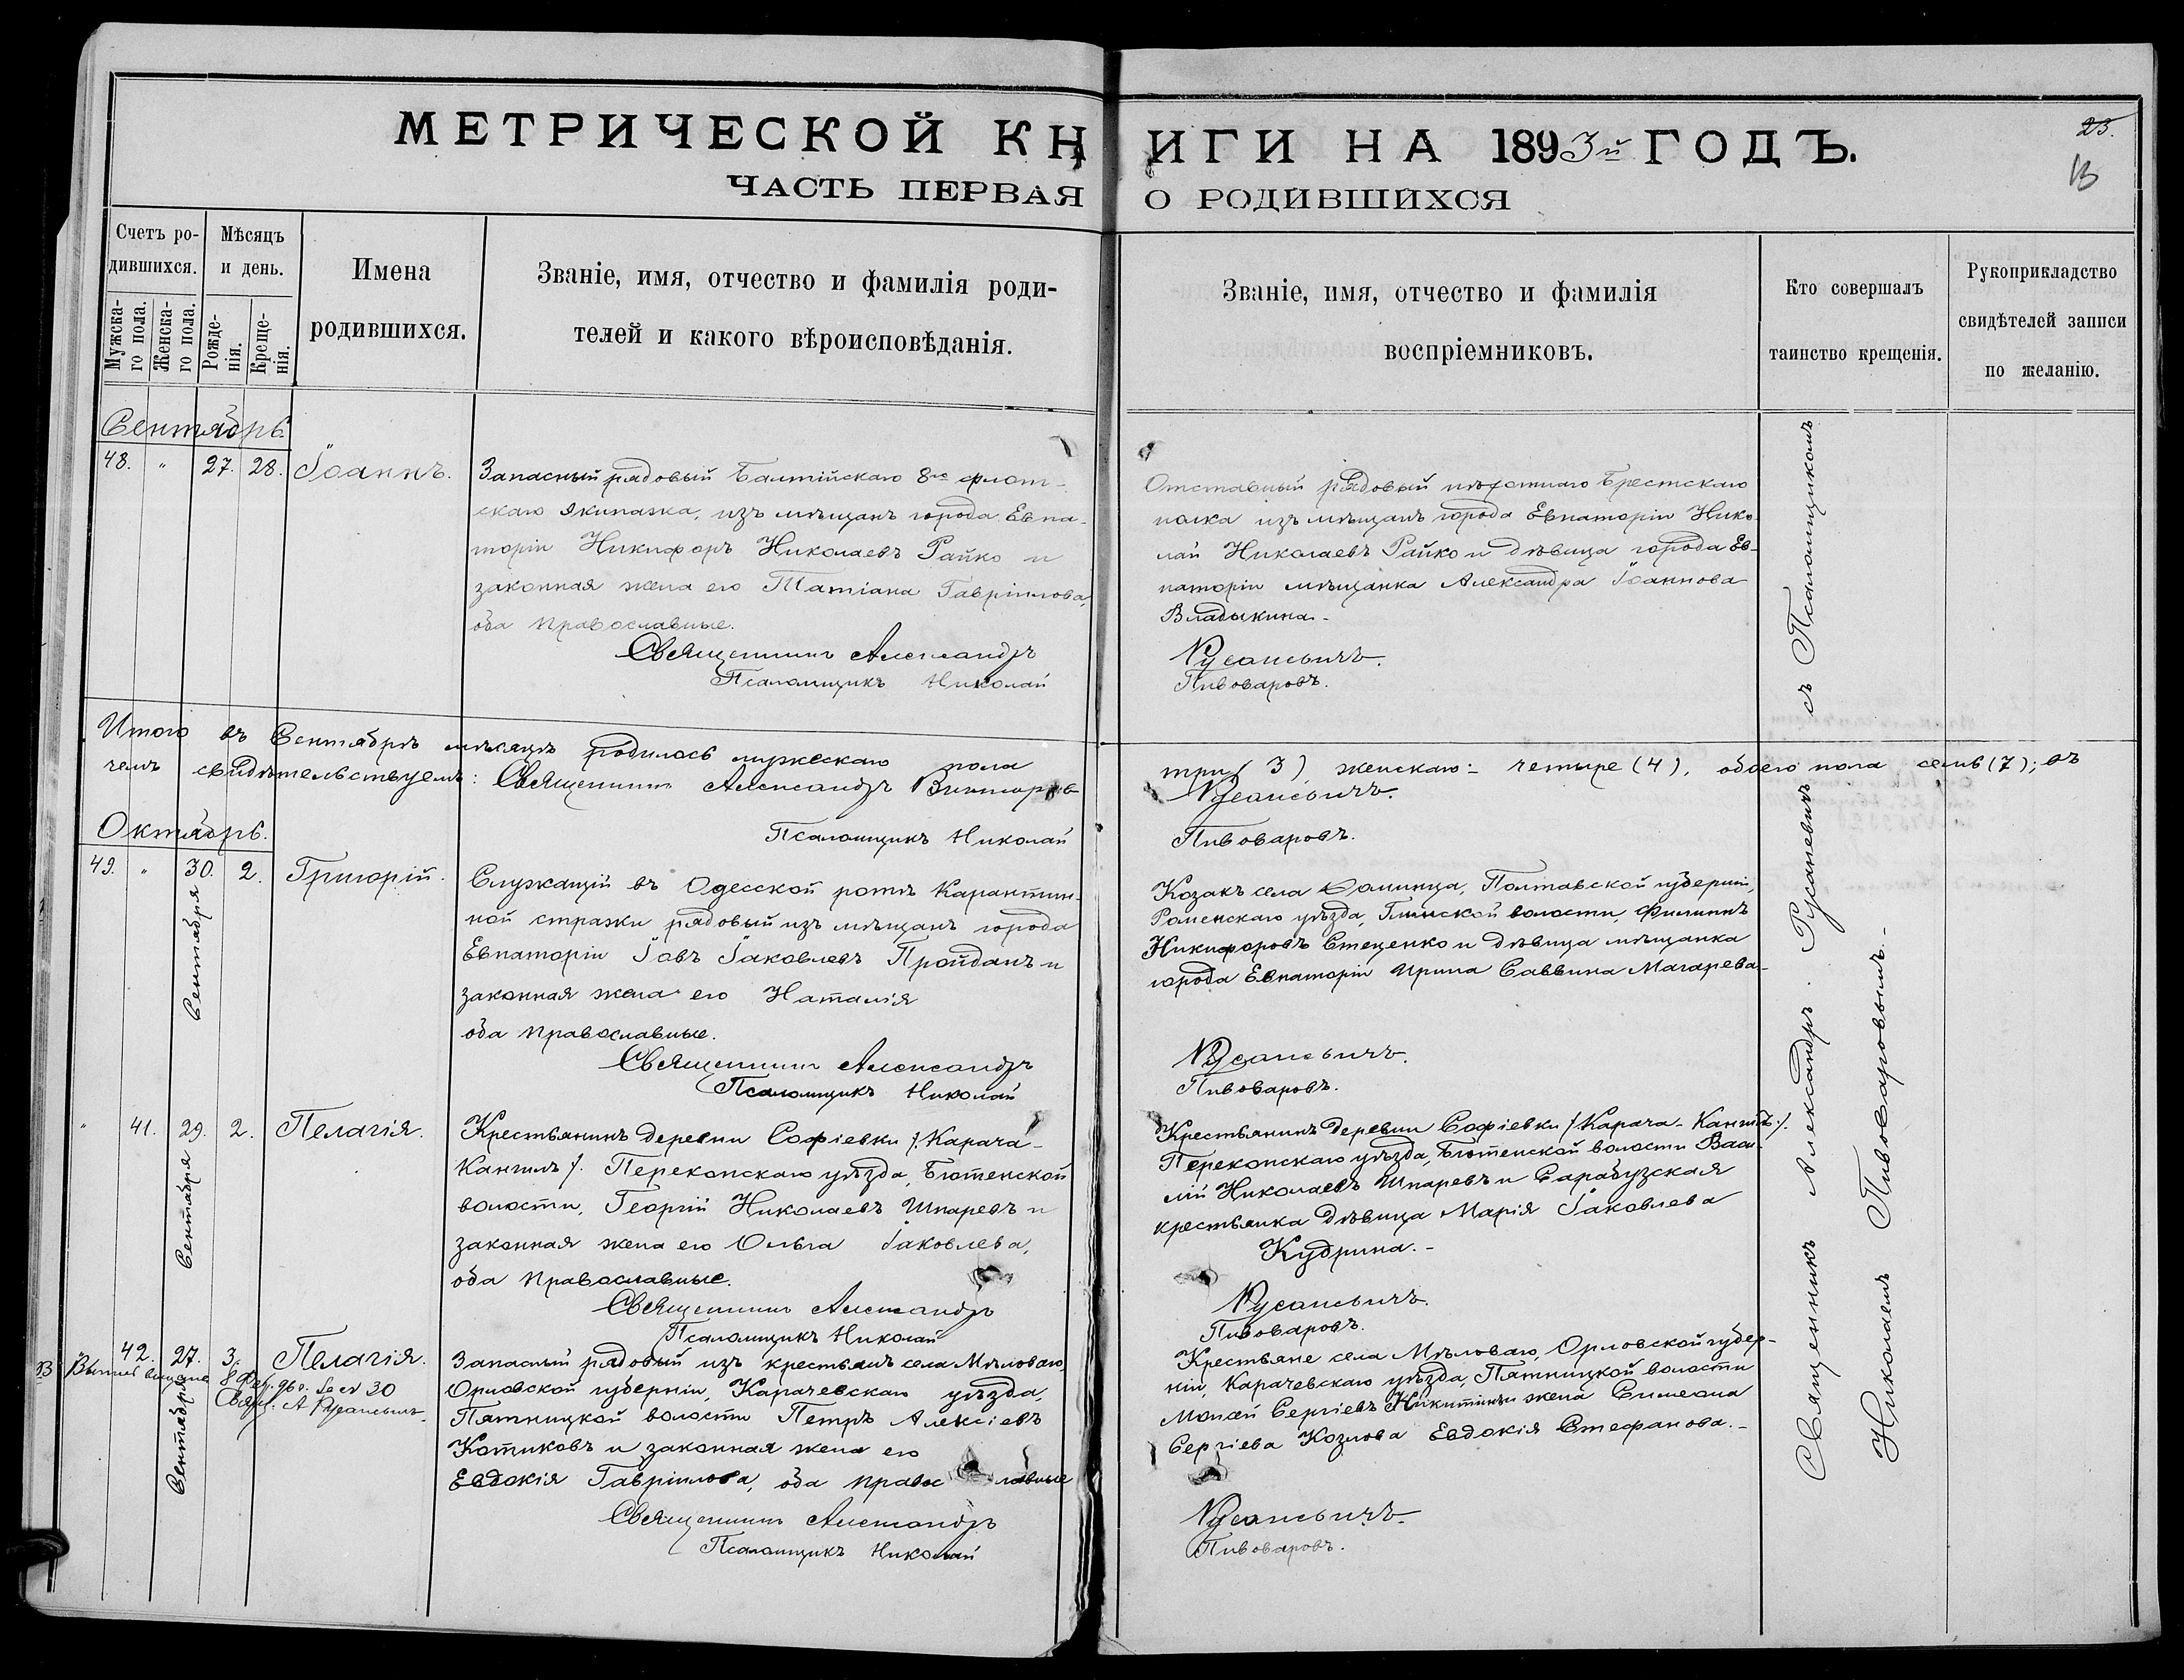 МЕТРИЧЕСКОЙ КНИГИ НА 1893й ГОДЪ.
25.
13
ЧАСТЬ ПЕРВАЯ О РОДИВШИХСЯ
Счетъ родившихся.
Мужска-
го пола.
Женска-
го пола.
Мѣсяцъ
и день.
Рожде-
нія.
Креще-
нія.
Имена
родившихся.
Званіе, имя, отчество и фамилія роди-
телей и какого вѣроисповѣданія.
Званіе, имя, отчество и фамилія
воспріемниковъ.
Кто совершалъ
таинство крещенія.
Рукоприкладство
свидѣтелей записи
по желанію.
Сентябрь.
48. " 27. 28. Іоаннъ.
Запасный рядовый Балтійскаго 8го флот-
скаго Экипажа, изъ мѣщанъ города Евпа-
торіи Никифоръ Николаевъ Райко и
законная жена его Татіана Гавріилова,
оба православные.
Священникъ Александръ
Псаломщикъ Николай
Отставный рядовый пѣхотнаго Брестскаго
полка изъ мѣщанъ города Евпаторіи Нико-
лай Николаевъ Райко и дѣвица города Ев-
паторіи мѣщанка Александра Іоаннова
Владыкина.
Русаневичъ.
Пивоваровъ.
Итого въ Сентябрѣ мѣсяцѣ родилось мужескаго пола три (3), женскаго - четыре (4), обоего пола семь (7); въ
чемъ свидѣтельствуемъ: Священникъ Александръ Викторовъ Русаневичъ.
Псаломщикъ Николай Пивоваровъ.
Октябрь.
49. " 30. 2. Григорій.
Сентября
Служащій въ Одесской ротѣ Карантин-
ной стражи рядовый изъ мѣщанъ города
Евпаторіи Іовъ Іаковлевъ Пройданъ и
законная жена его Наталія
оба православные.
Священникъ Александръ
Псаломщикъ Николай
Козакъ села Полтавской губерніи,
Роменскаго уѣзда, Глинской волости, Филиппъ
Никифоровъ Стеценко и дѣвица мѣщанка
города Евпаторіи Ирина Саввина Магарева
Русаневичъ.
Пивоваровъ.
" 41. 29. 2. Пелагія.
Сентября
Крестьянинъ деревни Софіевки /Карача-
Кангилъ/. Перекопскаго уѣзда, Бютенской
волости, Георгій Николаевъ Шпаревъ и
законная жена его Ольга Іаковлева,
оба православные.
Священникъ Александръ
Псаломщикъ Николай
Крестьянинъ деревни Софіевки /Карача-Кангилъ/.
Перекопскаго уѣзда, Бютенской волости Васи-
лій Николаевъ Шпаревъ и Сарабузская
крестьянка дѣвица Марія Іаковлева
Кудрина.-
Русаневичъ.
Пивоваровъ.
" 42. 27. 3. Пелагія.
Сентября
Запасный рядовый изъ крестьянъ села Мѣловаго,
Орловской губерніи, Карачевскаго уѣзда,
Пятницкой волости Петръ Алексіевъ
Котиковъ и законная жена его
Евдокія Гавріилова, оба православные
Священникъ Александръ
Псаломщикъ Николай
Крестьяне села Мѣловаго, Орловской губер-
ніи, Карачевскаго уѣзда, Пятницкой волости
Моисей Сергіевъ Никитинъ и жена Симеона
Сергіева Козлова Евдокія Стефанова.-
Русаневичъ.
Пивоваровъ.
Священникъ Александръ Русаневичъ съ Псаломщикомъ
Николаемъ Пивоваровымъ.-